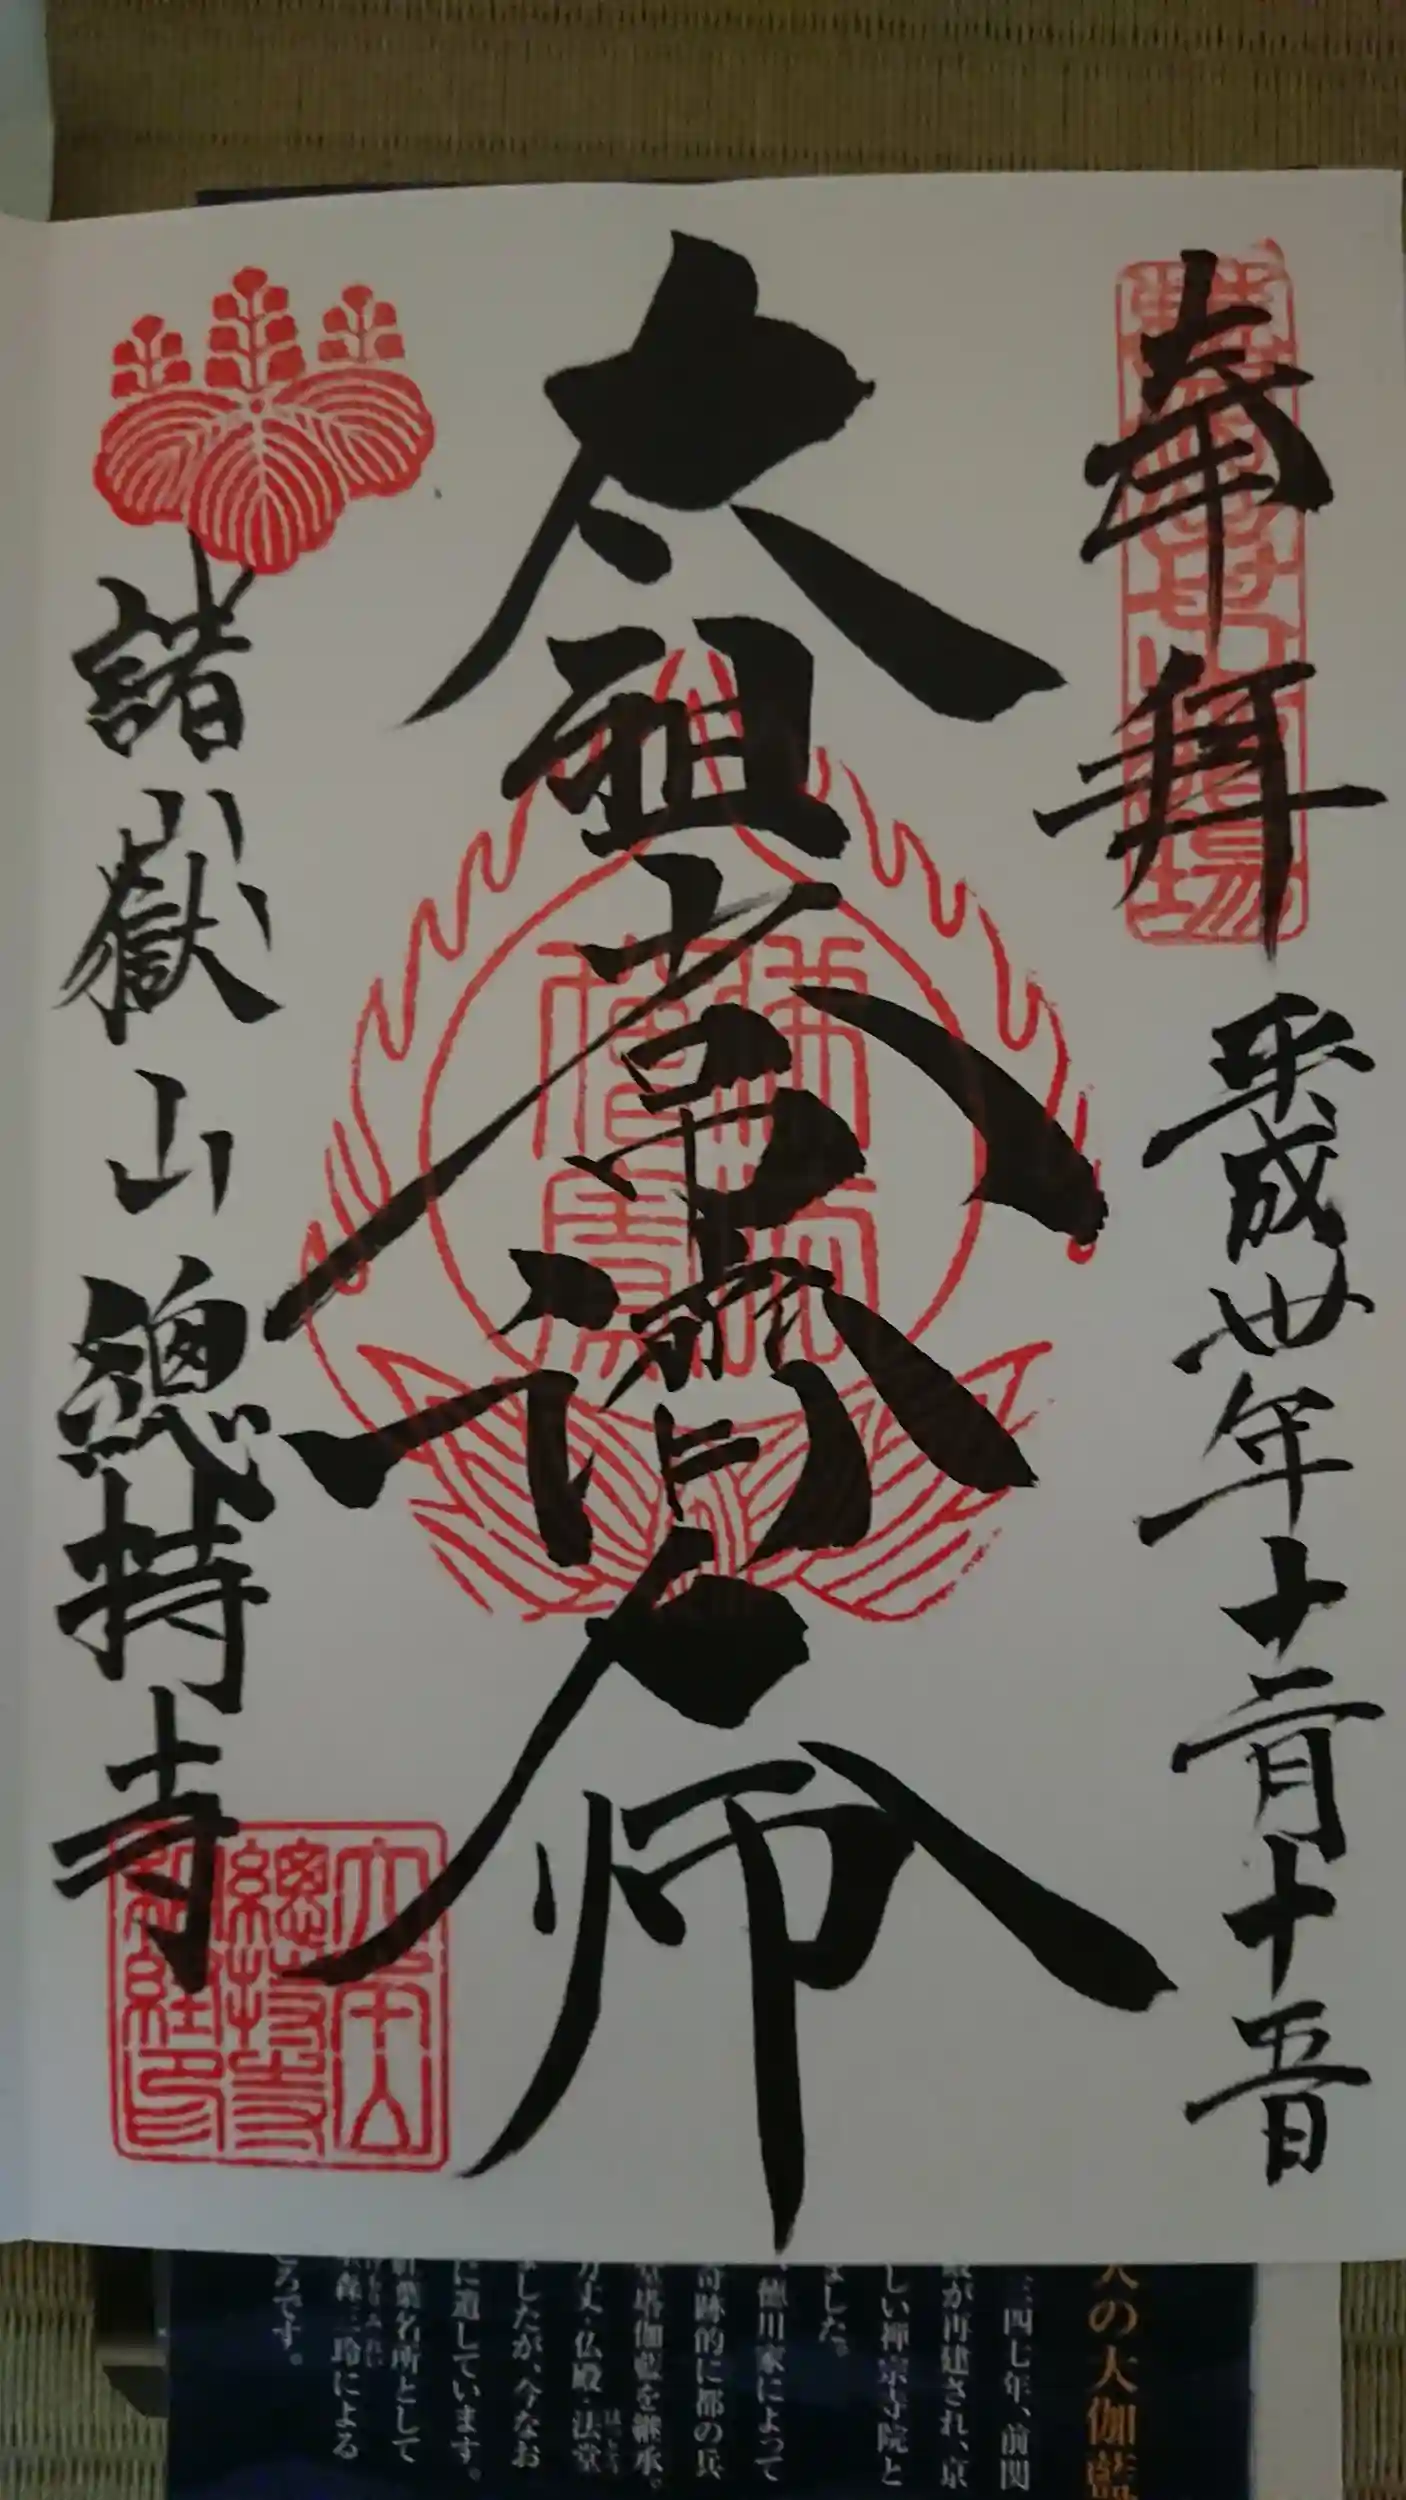 奉拝
平成卅年十二月十五日
太祖常濟大師
諸嶽山
總持寺
佛法僧寶
大本山
總持寺
納経印
の大伽藍
三四七年、前関
殿が再建され、京
しい禅宗寺院と
ました。
、徳川家によって
奇跡的に都の兵
堂塔伽藍を継承。
方丈・仏殿・法堂
ましたが、今なお
に遺しています。
紅葉名所として
森三玲による
ころです。